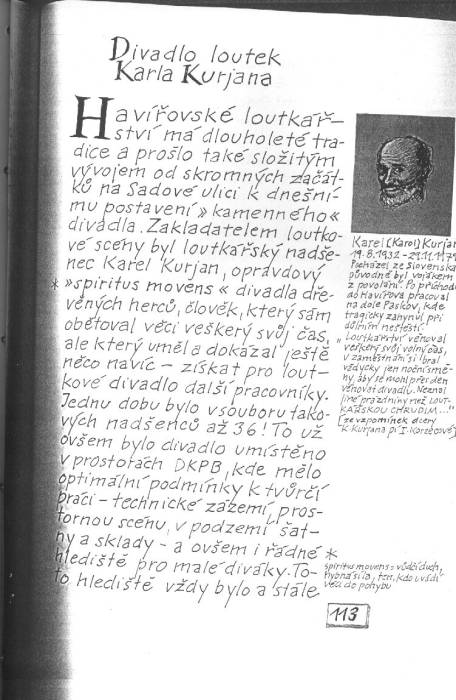 Divadlo loutek
Karla Kurjana
Havířovské loutkář-
ství má dlouholeté tra-
dice a prošlo také složitým
vývojem od skromných začát-
ků na Sadové ulici k dnešní-
mu postavení »kamenného«
divadla. Zakladatelem loutko-
vé scény byl loutkářský nadše-
nec Karel Kurjan, opravdový
* »spiritus movens« divadla dře-
věných herců, člověk, který sám
obětoval věci veškerý svůj čas,
ale který uměl a dokázal ještě
něco navíc – získat pro lout-
kové divadlo další pracovníky.
Jednu dobu bylo v souboru tako-
vých nadšenců až 36! To už
ovšem bylo divadlo umístěno
v prostorách DKPB, kde mělo
optimální podmínky k tvůrčí
práci – technické zázemí, pros-
tornou scénu, v podzemí šat-
ny a sklady – a ovšem i řádné
hlediště pro malé diváky. To-
to hlediště vždy bylo a stále
Karel (Karol) Kurjan
19. 8. 1932 –
Pocházel ze Slovenska
původně byl vojákem
z povolání. Po příchodu
do Havířova pracoval
na dole Paskov, kde
tragicky zahynul při
důlním neštěstí.
„Loutkářství věnoval
veškerý svůj volný čas,
v zaměstnání si bral
vždycky jen noční smě-
ny, aby se mohl přes den
věnovat divadlu. Neznal
jiné prázdniny než LOUT-
KÁŘSKOU CHRUDIM..."
(ze vzpomínek dcery
K. Kurjana pí I. Korzecové)
* spiritus movens = vůdčí duch,
hybná síla, tzn. kdo uvádí
věci do pohybu
113